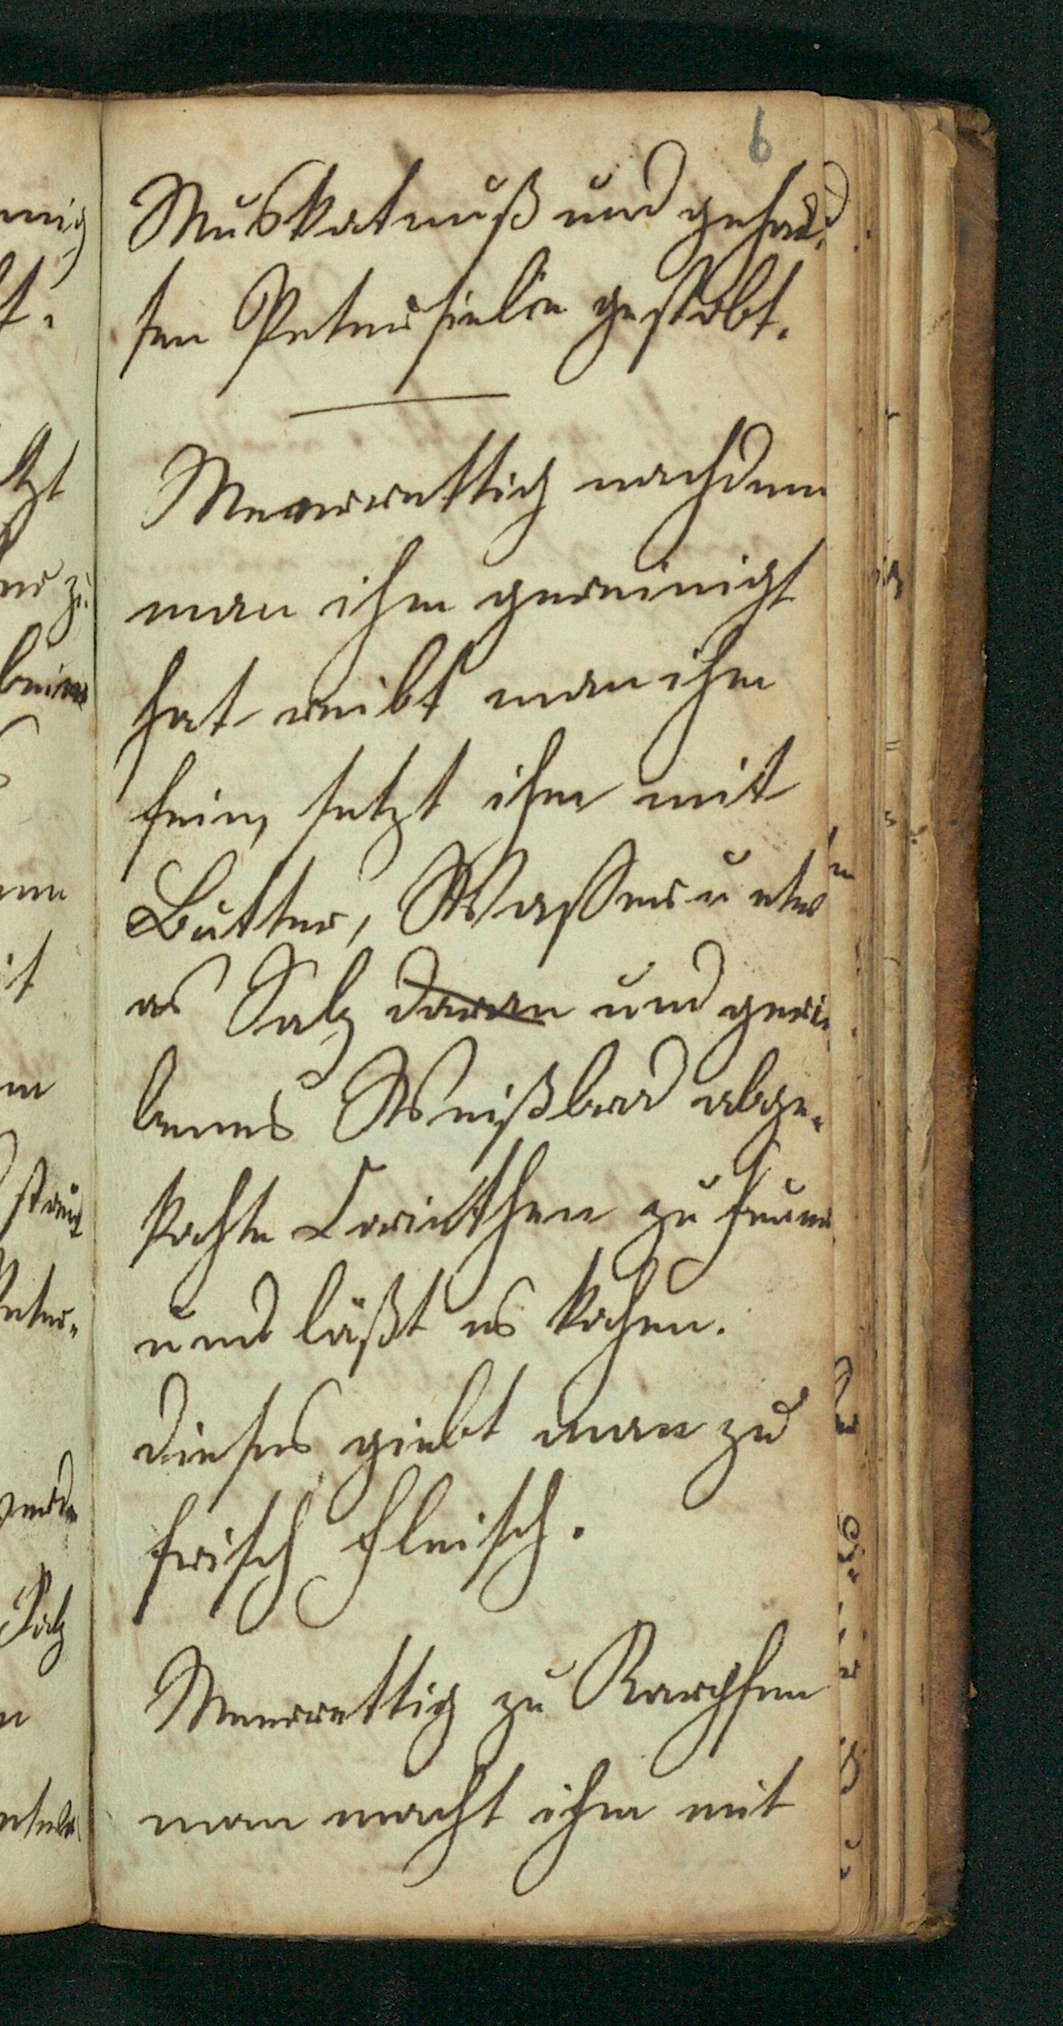 6
Muskatnuß und gehack,
ten Petersielie gestobt.
Meerrettig nachdem
man ihn gereinigt
hat reibt man ihn
fein, setzt ihn mit
Butter, Wasser u etw
as Salz daran und gerie
benes Weißbrod abge-
kochte Corinthen zu Feuer
und läßt es kochen.
dieses giebt man zu
frisch Fleisch.
Meerrettig zu Karpfen
man macht ihn mit